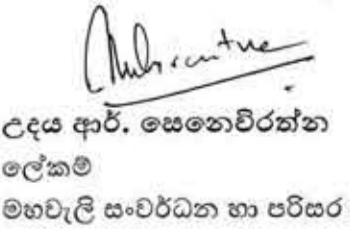 උදය ආර්. සෙනෙවිරත්න
ලේකම්
මහවැලි සංවර්ධන හා පරිසර